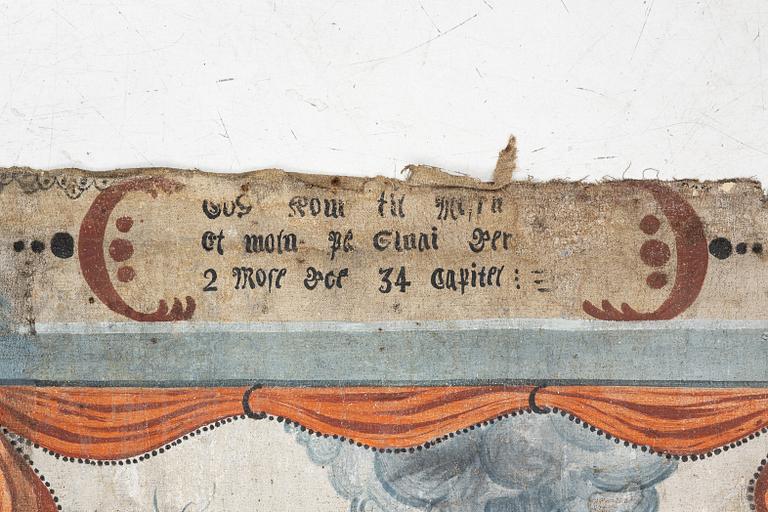 Gud kom til Mosen
Et moln på Sinai Der
2 Mose Bok 34 Capitel :